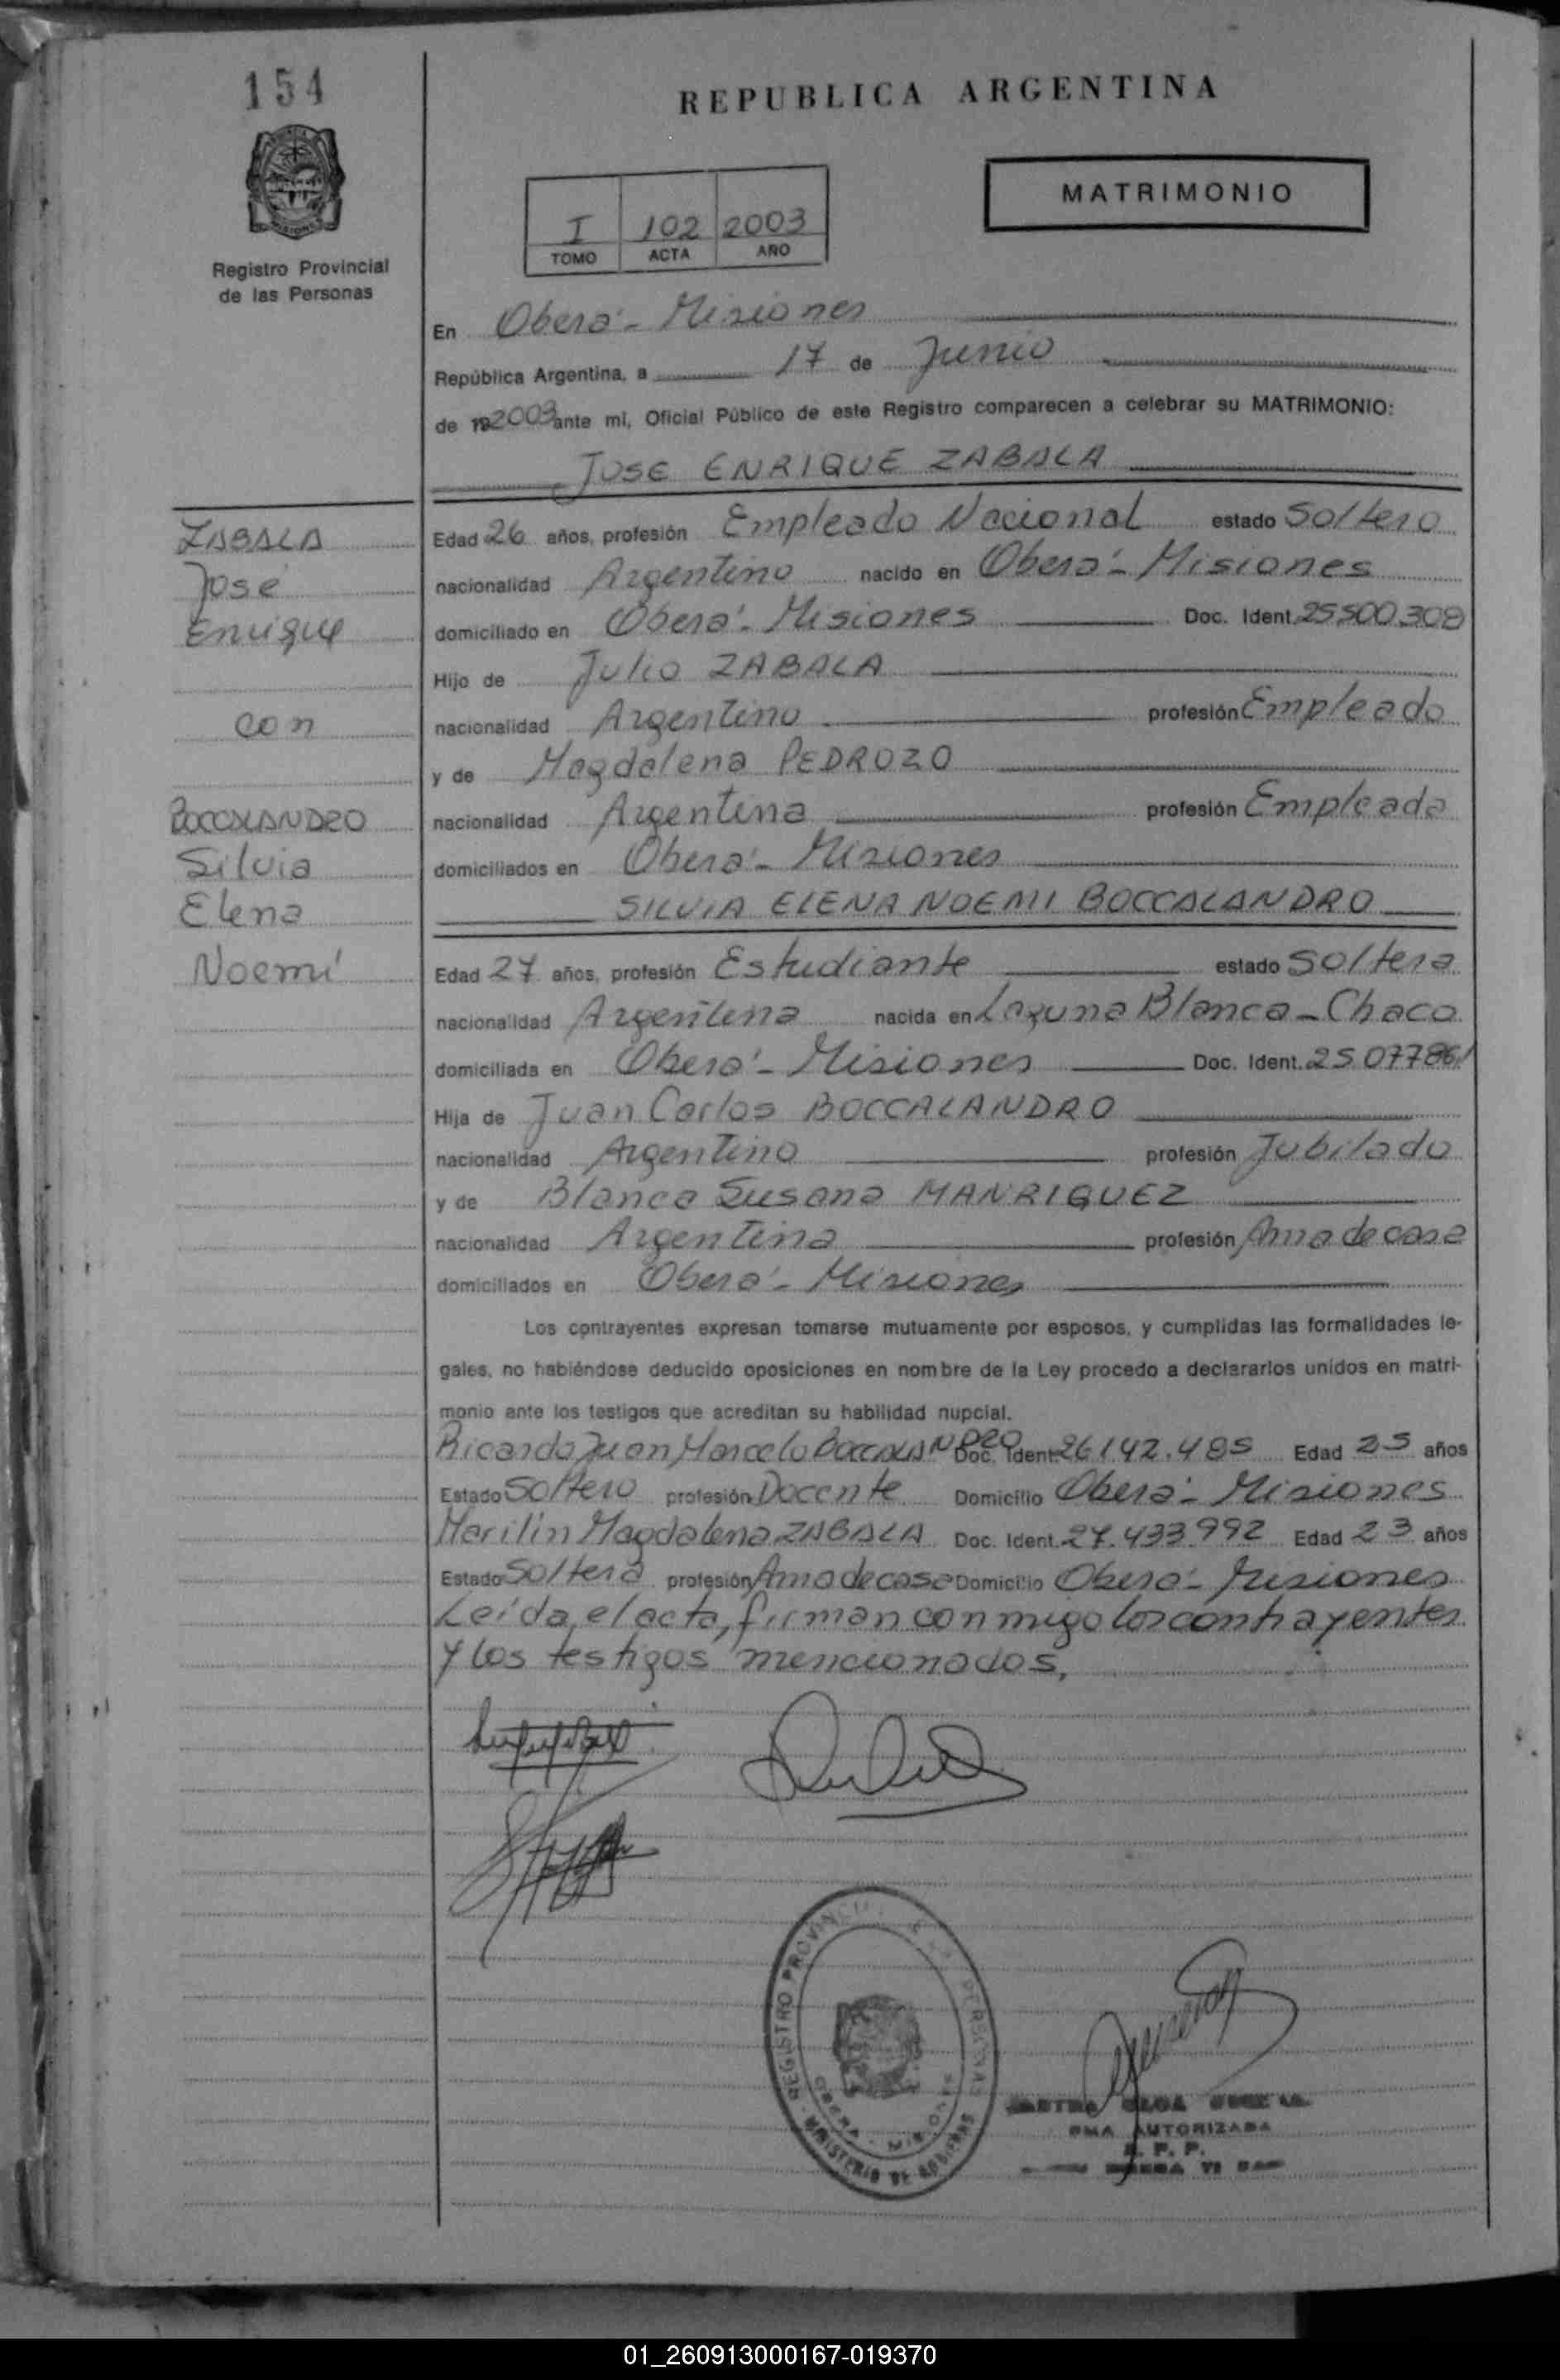 154
REPUBLICA ARGENTINA
MATRIMONIO
I 102 2003
TOMO ACTA AÑO
Registro Provincial
de las Personas
En Oberá - Misiones
República Argentina, a 17 de Junio
de 19 2003 ante mi, Oficial Público de este Registro comparecen a celebrar su MATRIMONIO:
JOSE ENRIQUE ZABALA
ZABALA
José
Enrique
con
BOCCALANDRO
Silvia
Elena
Noemí
Edad 26 años, profesión Empleado Nacional estado Soltero
nacionalidad Argentino nacido en Oberá - Misiones
domiciliado en Oberá - Misiones Doc. Ident. 25500308
Hijo de Julio ZABALA
nacionalidad Argentino profesión Empleado
y de Magdalena PEDROZO
nacionalidad Argentina profesión Empleada
domiciliados en Oberá - Misiones
SILVIA ELENA NOEMI BOCCALANDRO
Edad 27 años, profesión Estudiante estado Soltera
nacionalidad Argentina nacida en Laguna Blanca - Chaco
domiciliada en Oberá - Misiones Doc. Ident. 25.077861
Hija de Juan Carlos BOCCALANDRO
nacionalidad Argentino profesión Jubilado
y de Blanca Susana MANRIQUEZ
nacionalidad Argentina profesión Ama de casa
domiciliados en Oberá - Misiones
Los contrayentes expresan tomarse mutuamente por esposos, y cumplidas las formalidades le-
gales, no habiéndose deducido oposiciones en nombre de la Ley procedo a declararlos unidos en matri-
monio ante los testigos que acreditan su habilidad nupcial.
Ricardo Juan Marcelo BOCCALANDRO Doc. Ident. 26.142.485 Edad 25 años
Estado Soltero profesión Docente Domicilio Oberá - Misiones
Marilin Magdalena ZABALA Doc. Ident. 27.433.992 Edad 23 años
Estado Soltera profesión Ama de casa Domicilio Oberá - Misiones
Leída, el acta, firman conmigo los contrayentes
y los testigos mencionados.
REGISTRO PROVINCIAL DE LAS PERSONAS
OBERA - MISIONES
MINISTERIO DE GOBIERNO
OLGA
AUTORIZADA
R. P. P.
01_260913000167-019370